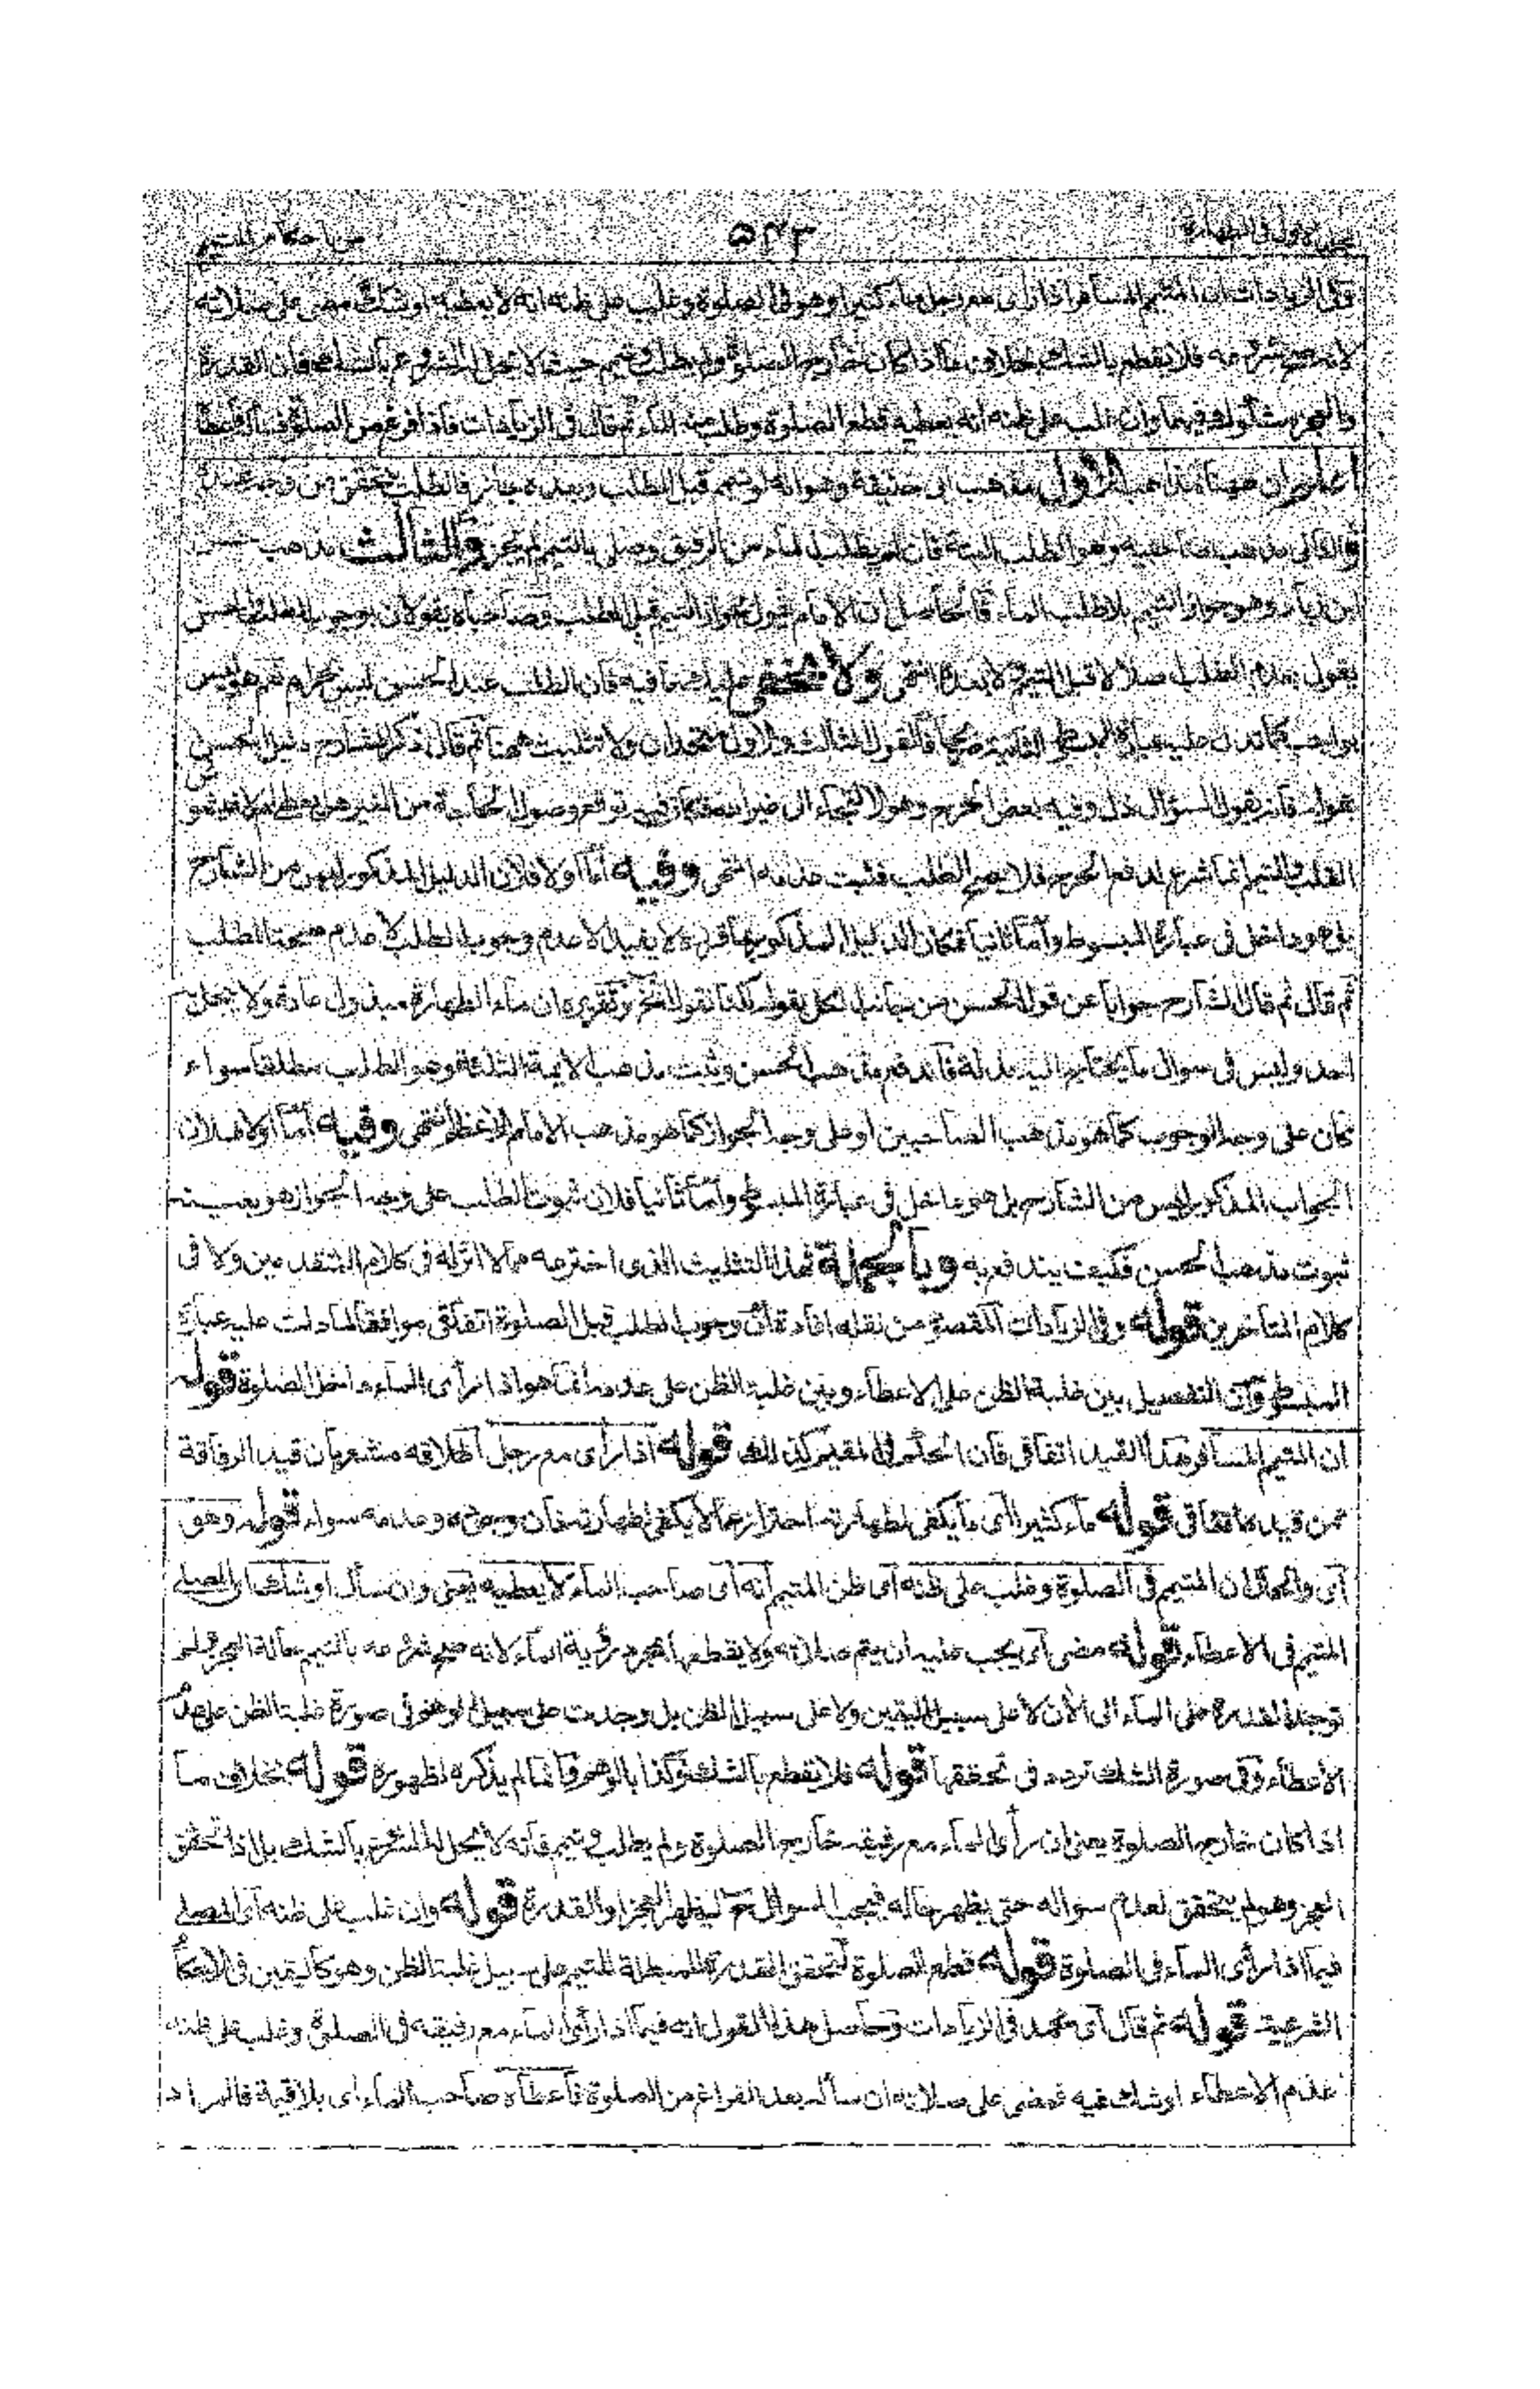 ۵۴۳
وفى الزيادات ان المتيمم المسافر اذا رأى مع رجل ماء كثيرا وهو فى الصلوة وغلب على ظنه انه لا يعطيه اوشك مضى على صلاته
لانه صح شروعه فلا يقطع بالشك بخلاف ما اذا كان خارج الصلوة ولم يطلب وتيمم حيث لا يحل له الشروع بالشك فان القدرة
والعجز مشكوك فيهما وان غلب على ظنه انه يعطيه قطع الصلوة وطلب منه الماء ثم قال فى الزيادات فاذا فرغ من الصلوة فسأله فاعطاه
اعلم ان ههنا مذاهب الاول مذهب ابى حنيفة وهو انه لو تيمم قبل الطلب وبعده جاز فالطلب
والثانى مذهب صاحبيه وهو الطلب البتة فان لم يطلب الماء من الرفيق وصلى بالتيمم لم يجز والثالث مذهب حسن
ابن زياد وهو جواز التيمم بلا طلب الماء فالحاصل ان الامام يقول بجواز التيمم قبل الطلب وصاحباه يقولان بوجوب الطلب والحسن
يقول بعدم الطلب اصلا لا قبل التيمم ولا بعده انتهى ولا يخفى عليك ما فيه فان الطلب عند الحسن ليس بحرام نعم هو ليس
بواجب كما تدل عليه عبارة المبسوط صريحا فالقول الثالث والاول متحدان ولا تثليث ههنا ثم قال ذكر الشارح دليل الحسن
بقوله فانه يقول السؤال ذل وفيه بعض الحرج وهو الالتجاء الى غير الله
التيمم انما شرع لدفع الحرج فلا يصح الطلب فثبت عدمه انتهى وفيه اما اولا فلان الدليل المذكور ليس من الشارح
بل هو داخل فى عبارة المبسوط واما ثانيا فلان الدليل المذكور لا يفيد الا عدم وجوب الطلب لا عدم صحة الطلب
ثم قال ثم قال الشارح جوابا عن قول الحسن من جانب الكل بقوله لكنا نقول الخ وتقريره ان ماء الطهارة مبذول عادة ولا يبخل
احد وليس فى سوال ما يحتاج اليه مذلة فاندفع مذهب الحسن وثبت مذهب الايمة الثلثة وهو الطلب مطلقا سواء
كان على وجه الوجوب كما هو مذهب الصاحبين او على وجه الجواز كما هو مذهب الامام الاعظم انتهى وفيه اما اولا فلان
الجواب المذكور ليس من الشارح بل هو داخل فى عبارة المبسوط واما ثانيا فلان ثبوت الطلب على وجه الجواز هو بعينه
ثبوت مذهب الحسن فكيف يندفع به وبالجملة فهذا التثليث الذى اخترعه مما لا اثر له فى كلام المتقدمين ولا فى
كلام المتأخرين قوله وفى الزيادات المقصود من نقله افادة أن وجوب الطلب قبل الصلوة اتفاقى موافقا لما دلت عليه عبارة
المبسوط وان التفصيل بين غلبة الظن على الاعطاء وبين غلبة الظن على عدمه انما هو اذا رأى الماء داخل الصلوة قوله
ان المتيمم المسافر هذا القيد اتفاقى فان الحكم فى المقيم كذلك قوله اذا رأى مع رجل اطلاقه مشعر بان قيد الرفاقة
ممن قيده اتفاقى قوله ماء كثيرا اى ما يكفى لطهارته احتراز عما لا يكفى لطهارته فان وجوده وعدمه سواء قوله وهو
اى والحال ان المتيمم فى الصلوة وغلب على ظنه اى ظن المتيمم انه اى صاحب الماء لا يعطيه يعنى وان سأل اوشك اى المصلى
المتيمم فى الاعطاء قوله مضى اى يجب عليه ان يتم صلاته ولا يقطعها بمجرد رؤية الماء لانه صح شروعه بالتيمم حالة العجز ولم
توجد القدرة على الماء الى الآن لا على سبيل اليقين ولا على سبيل الظن بل وجدت على سبيل الوهم فى صورة غلبة الظن على عدم
الاعطاء وفى صورة الشك تردد فى تحققها قوله فلا يقطع بالشك وكذا بالوهم وانما لم يذكره لظهوره قوله بخلاف ما
اذا كان خارج الصلوة يعنى ان رأى الماء مع رفيقه خارج الصلوة ولم يطلب وتيمم فانه لا يحل له الشروع بالشك بل اذا تحقق
العجز وهو لم يتحقق لعدم سواله حتى يظهر حاله فيجب السوال ح ليظهر العجز او القدرة قوله وان غلب على ظنه اى المصلى
فيما اذا رأى الماء فى الصلوة قوله قطع الصلوة لتحقق القدرة المبطلة للتيمم على سبيل غلبة الظن وهو كاليقين فى الاحكام
الشرعية قوله ثم قال اى محمد فى الزيادات وحاصل هذا القول انه فيما اذا رأى الماء مع رفيقه فى الصلوة وغلب على ظنه
عدم الاعطاء اوشك فيه فمضى على صلاته ان سأله بعد الفراغ من الصلوة فاعطاه صاحب الماء اى بلاقية فالمراد